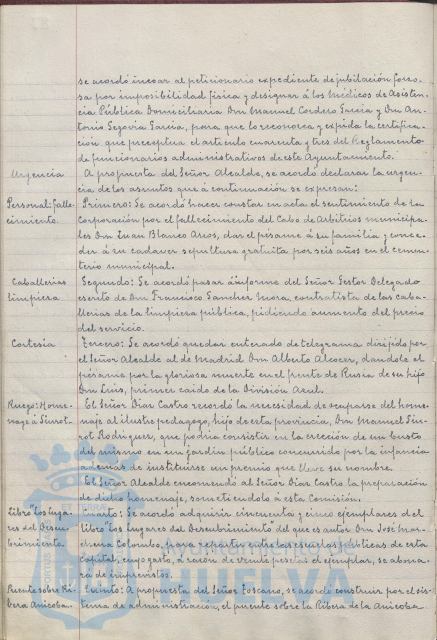 se acordó incoar al peticionario expediente de jubilación forzo-
sa por imposibilidad física y designar á los Médicos de Asisten-
cia Pública Domiciliaria Don Manuel Cordero García y Don An-
tonio Segovia García, para que lo reconozca y expida la certifica-
ción que preceptua el artículo cuarenta y tres del Reglamento
de funcionarios administrativos de este Ayuntamiento.
Urgencia A propuesta del Señor Alcalde, se acordó declarar la urgen-
cia de los asuntos que á continuación se expresan:
Personal: falle- Primero: Se acordó hacer constar en acta el sentimiento de la
cimiento. Corporación por el fallecimiento del Cabo de Arbitrios municipa-
les Don Juan Blanco Arros, dar el pésame á su familia y conce-
der á su cadaver sepultura gratuita por seis años en el cemen-
terio municipal.
Caballerías Segundo: Se acordó pasar á informe del Señor Gestor Delegado
limpieza escrito de Don Francisco Sanchez Mora, contratista de las caba-
llerías de la limpieza pública, pidiendo aumento del precio
del servicio.
Cortesía Tercero: Se acordó quedar enterado de telegrama dirijido por
el Señor Alcalde al de Madrid Don Alberto Alcocer, dandole el
pésame por la gloriosa muerte en el frente de Rusia de su hijo
Don Luis, primer caido de la División Azul.
Ruego: Home- El Señor Diaz Castro recordó la necesidad de ocuparse del home-
naje á Siurot. naje al ilustre pedagogo, hijo de esta provincia, Don Manuel Siu-
rot Rodriguez, que podria consistir en la erección de un busto
del mismo en un jardin público concurrido por la infancia
además de instituirse un premio que lleve su nombre.
El Señor Alcalde encomendó al Señor Diaz Castro la preparación
de dicho homenaje, sometiendolo á esta Comisión.
Libro "Los Luga- Cuarto: Se acordó adquirir cincuenta y cinco ejemplares del
res del Descu- libro "Los Lugares del Descubrimiento" del que es autor Don José Mar-
brimiento. chena Colombo, para repartir entre las escuelas públicas de esta
capital, cuyo gasto, á razón de veinte pesetas el ejemplar, se abona-
rá de imprevistos.
Puente sobre Ri- Quinto: A propuesta del Señor Toscano, se acordó construir por el sis-
bera Anicoba. tema de administración, el puente sobre la Ribera de la Anicoba.
Ayuntamiento de
HUELVA